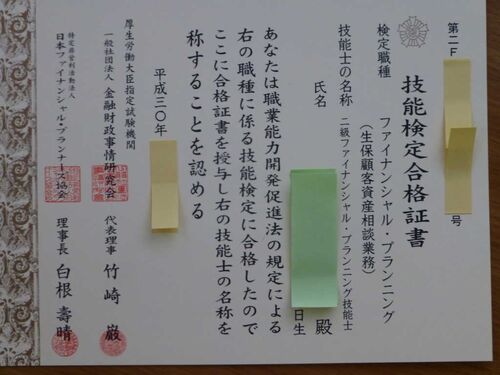 第二F
号
技能検定合格証書
検定職種
ファイナンシャル・プランニング
（生保顧客資産相談業務）
技能士の名称
二級ファイナンシャル・プランニング技能士
氏名
殿
日生
あなたは職業能力開発促進法の規定による
右の職種に係る技能検定に合格したので
ここに合格証書を授与し右の技能士の名称を
称することを認める
平成三〇年
厚生労働大臣指定試験機関
一般社団法人 金融財政事情研究会
代表理事 竹崎 巌
特定非営利活動法人
日本ファイナンシャル・プランナーズ協会
理事長 白根 壽晴